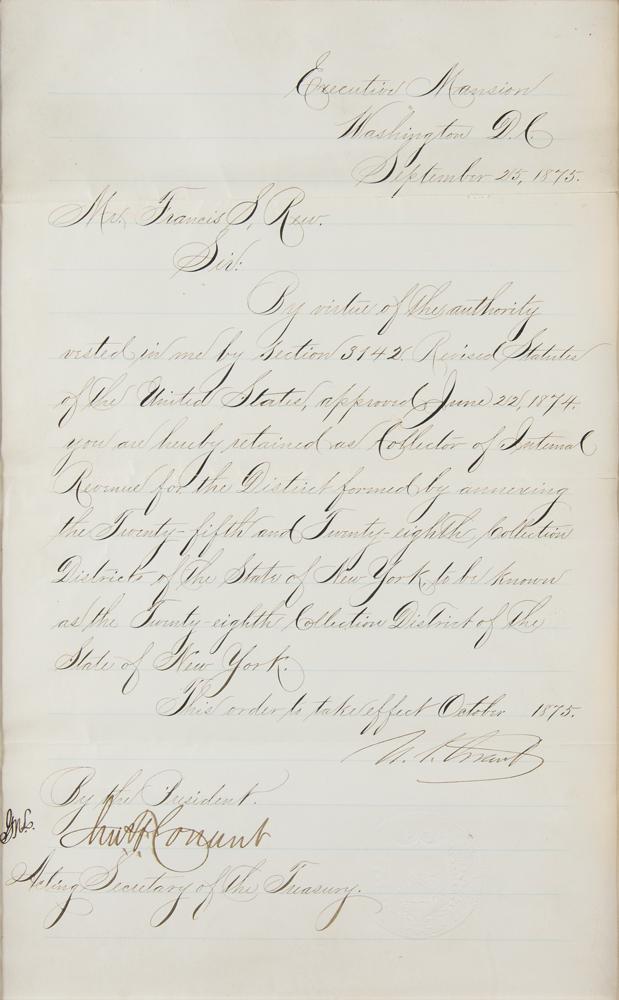 Executive Mansion
Washington D.C.
September 25, 1875.
Mr. Francis S. Rew.
Sir:
By virtue of the authority
vested in me by Section 3142 Revised Statutes
of the United States, approved June 22, 1874.
you are hereby retained as Collector of Internal
Revenue for the District formed by annexing
the Twenty-fifth and Twenty-eighth Collection
Districts of the State of New York, to be known
as the Twenty-eighth Collection District of the
State of New York.
This order to take effect October 1875.
U. S. Grant
By the President.
Chas. F. Conant
Acting Secretary of the Treasury.